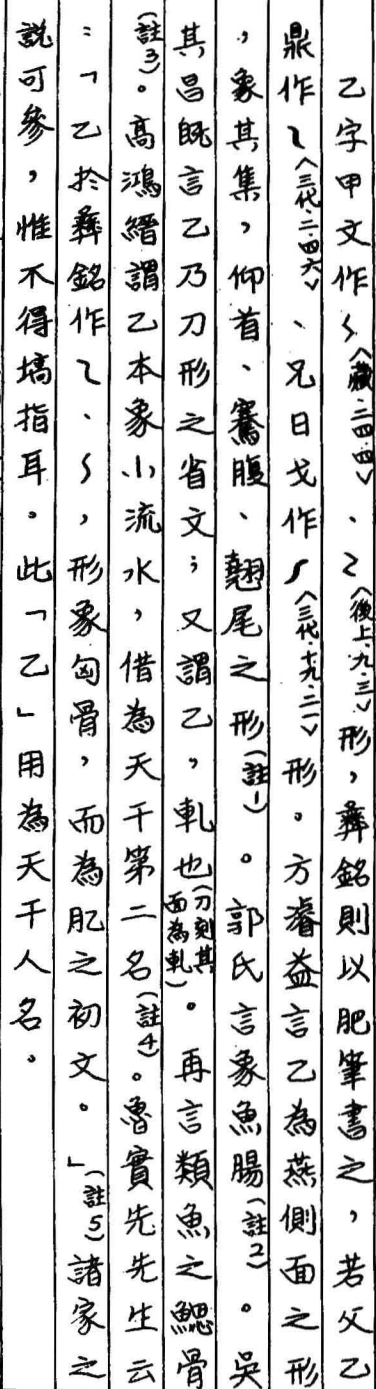 乙字甲文作〈藏·二四四〉、〈後上·九·三〉形，彝銘則以肥筆書之，若父乙
鼎作〈三代·二·四六〉、兄日戈作〈三代·十九·二一〉形。方濬益言乙為燕側面之形
，象其集，仰首、騫腹、翹尾之形(註1)。郭氏言象魚腸(註2)。吳
其昌既言乙乃刀形之省文；又謂乙，軋也(刀刻其面為軋)。再言類魚之鰓骨
(註3)。高鴻縉謂乙本象小流水，借為天干第二名(註4)。魯實先先生云
：「乙於彝銘作、，形象匈骨，而為肊之初文。」(註5)諸家之
說可參，惟不得塙指耳。此「乙」用為天干人名。